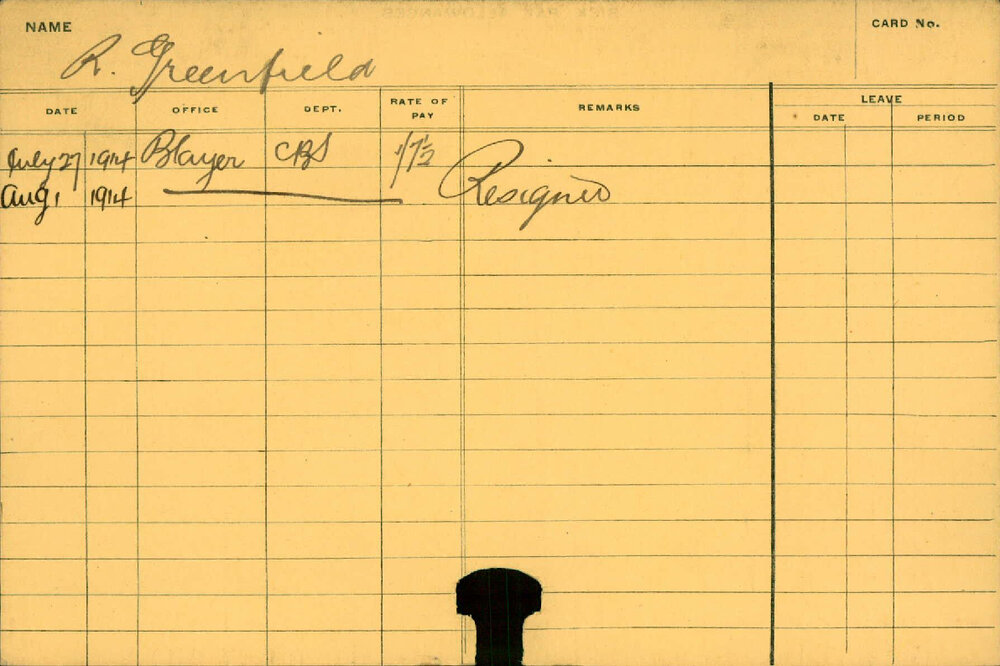 NAME
R. Greenfield
CARD No.
DATE OFFICE DEPT. RATE OF PAY REMARKS LEAVE
DATE PERIOD
July 27 1914 Blayer CBS 1/7½
Aug 1 1914 Resigned